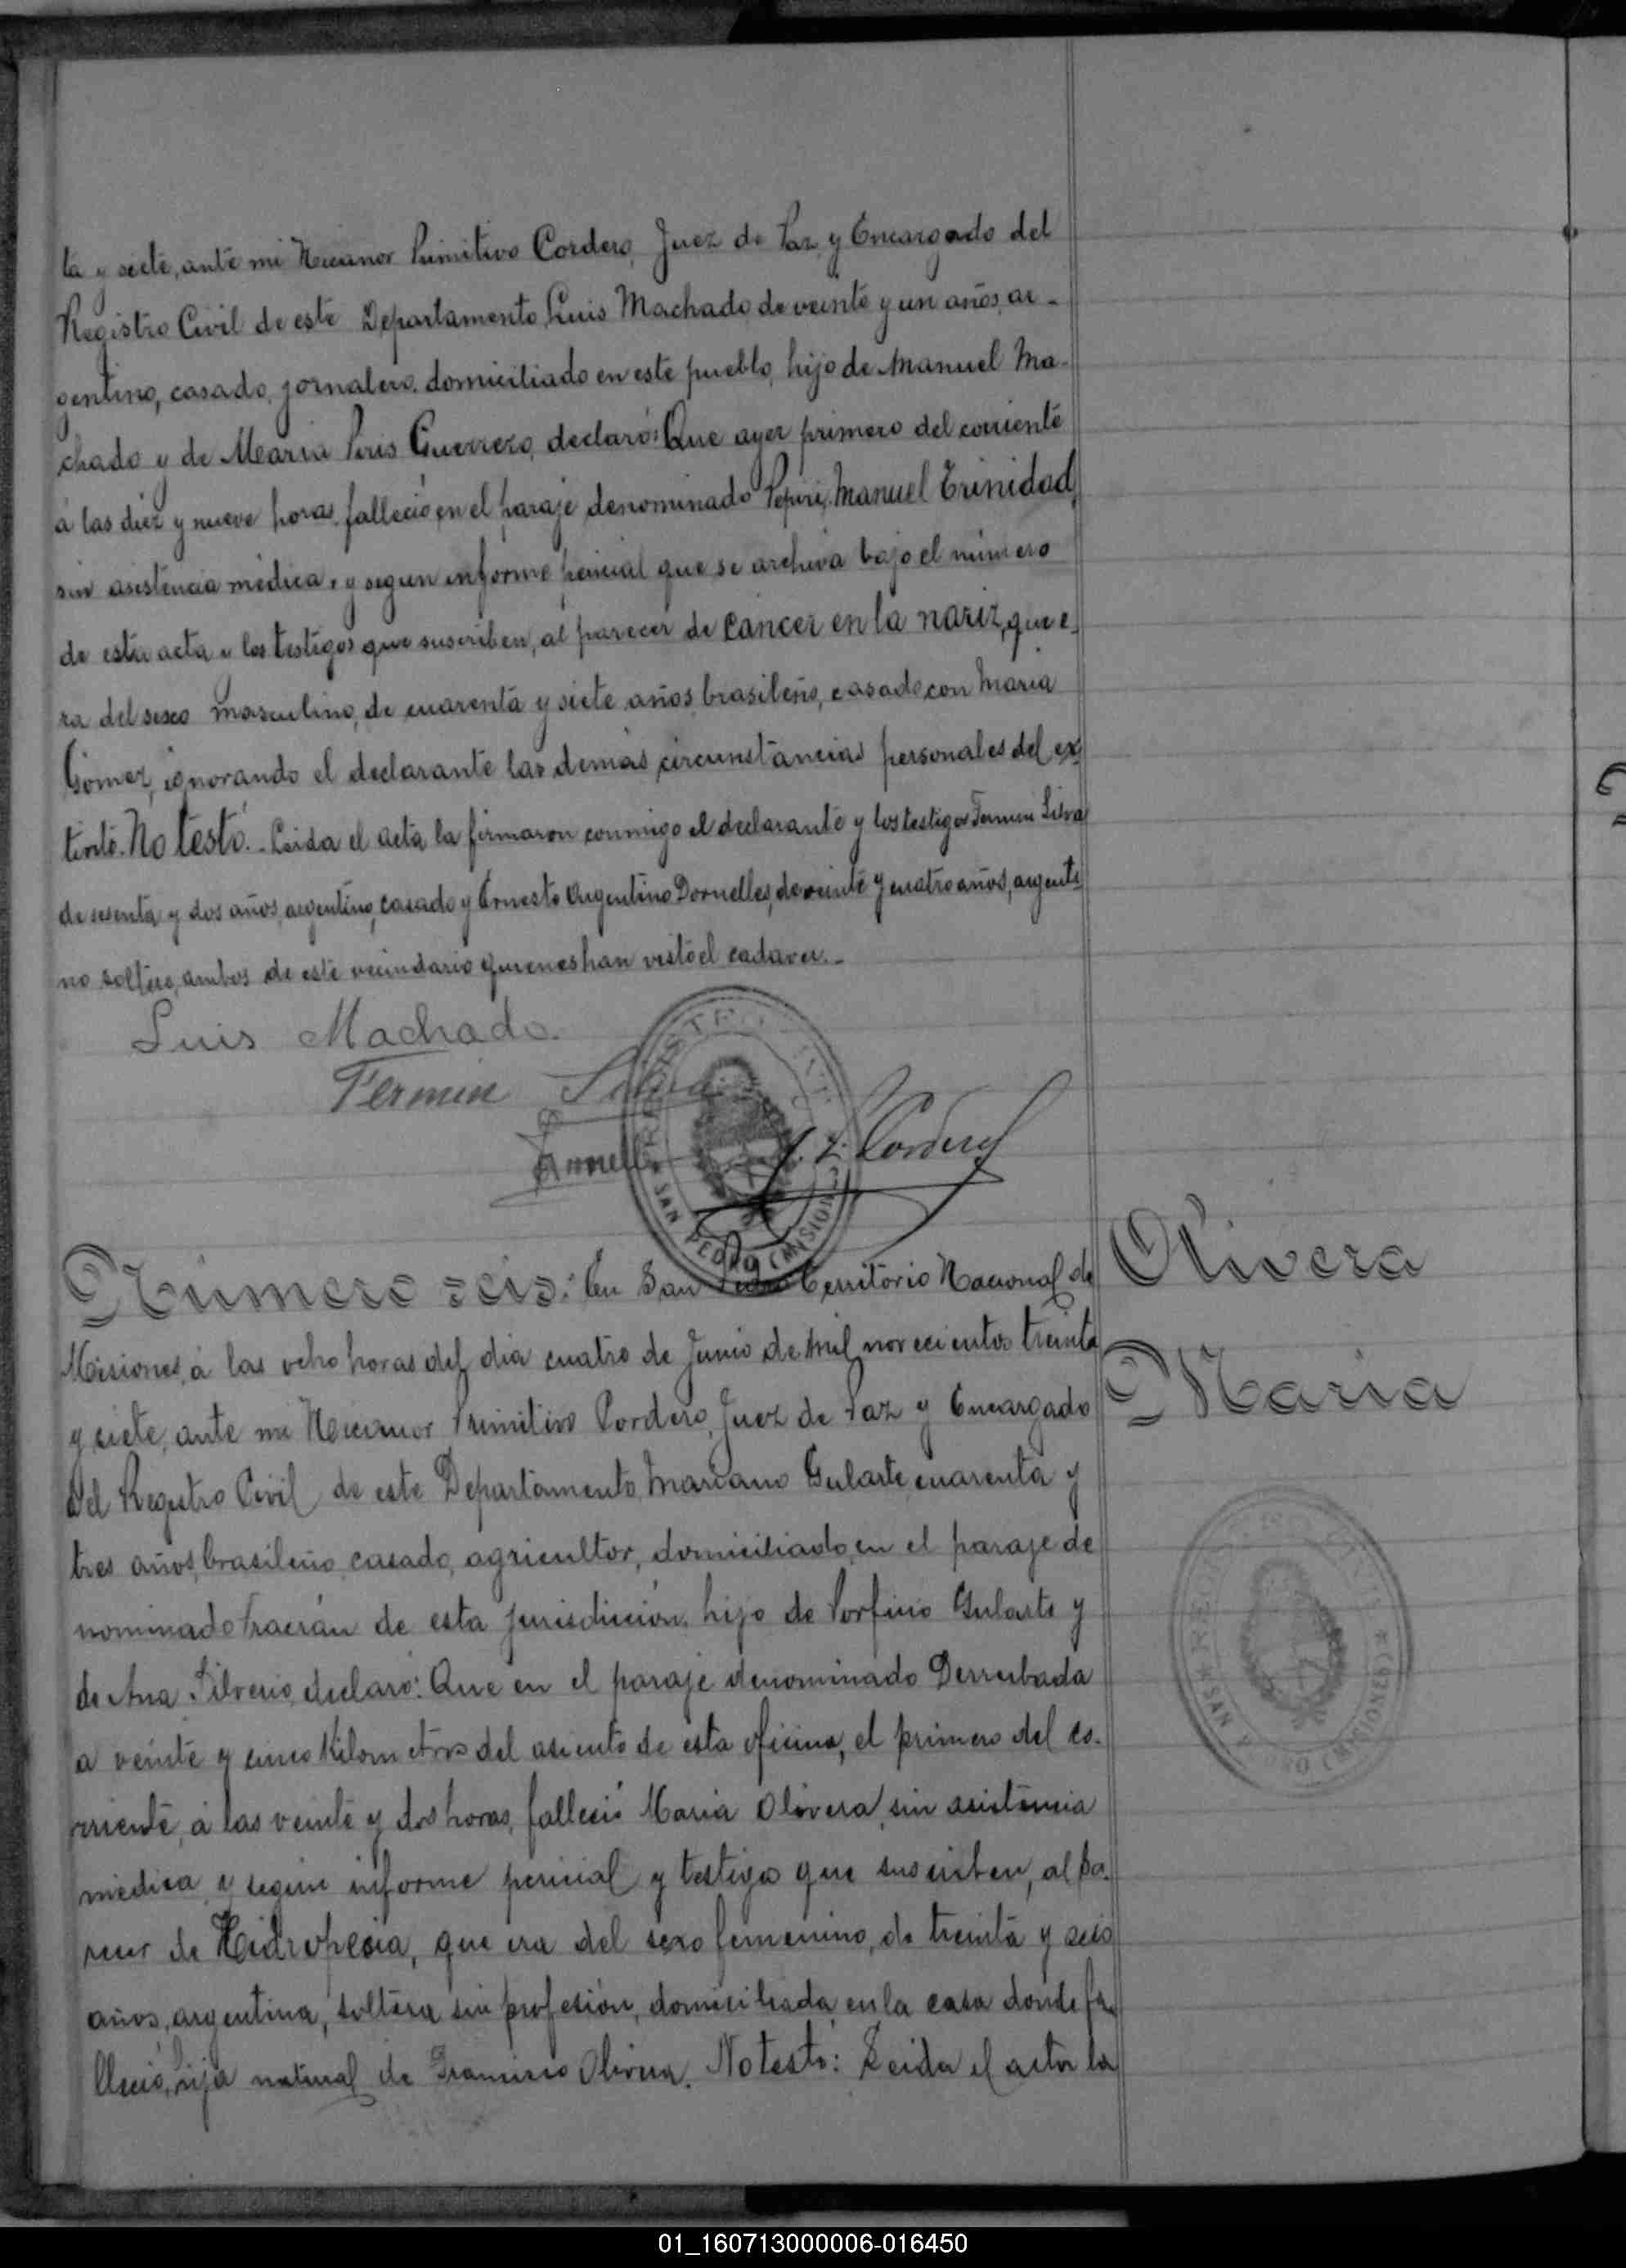 ta y siete, ante mi Nicanor Primitivo Cordero, Juez de Paz y Encargado del
Registro Civil de este Departamento, Luis Machado de veinte y un años, ar-
gentino, casado, jornalero, domiciliado en este pueblo, hijo de Manuel Ma-
chado y de Maria Piris Guerrero, declaró: Que ayer primero del corriente
á las diez y nueve horas, falleció, en el paraje denominado Pepiri, Manuel Trinidad,
sin asistencia médica, y segun informe pericial que se archiva bajo el número
de esta acta y los testigos que suscriben, al parecer de cancer en la nariz, que e-
ra del sexo masculino, de cuarenta y siete años, brasileño, casado con Maria
Gomez, ignorando el declarante las demás circunstancias personales del ex
tinto. No testó.- Leida el acta la firmaron conmigo el declarante y los testigos Fermin Silva
de sesenta y dos años, argentino, casado y Ernesto Argentino Dornelles, de veinte y cuatro años, argenti
no soltero, ambos de este vecindario quienes han visto el cadaver.-
Luis Machado.
Fermin Silva
Cordero
SAN PEDRO (MISIONES)
Número seis: En San Pedro Territorio Nacional de
Misiones, á las ocho horas del dia cuatro de Junio de mil novecientos treinta
y siete, ante mi Nicanor Primitivo Cordero, Juez de Paz y Encargado
del Registro Civil de este Departamento, Mariano Gularte cuarenta y
tres años, brasileño, casado, agricultor, domiciliado, en el paraje de
nominado Fracrán de esta jurisdicción, hijo de Porfirio Gularte y
de Ana Silverio, declaró: Que en el paraje denominado Derrubada
a veinte y cinco Kilometros del asiento de esta oficina, el primero del co-
rriente, á las veinte y dos horas, falleció Maria Olivera, sin asistencia
médica, y segun informe pericial y testigos que suscriben, al pa-
recer de Hidropesia, que era del sexo femenino, de treinta y seis
años, argentina, soltera sin profesión, domiciliada, en la casa donde fa
lleció, hija natural de Francisca Olivera. No testó: Leida el acta la
Olivera
Maria
REGISTRO CIVIL
SAN PEDRO (MISIONES)
01_160713000006-016450